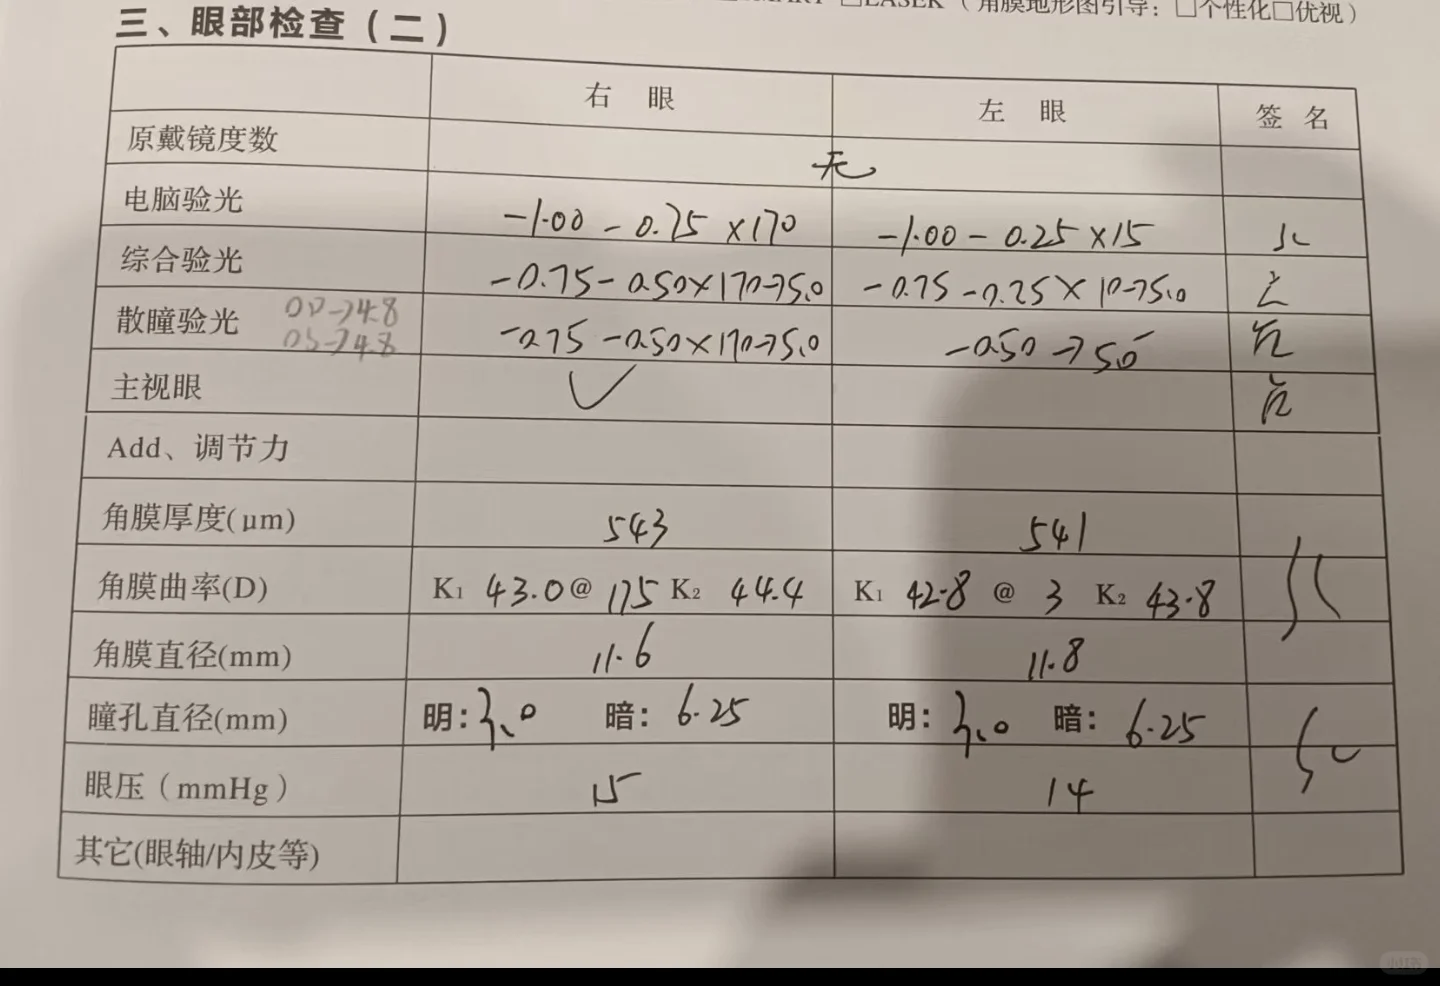 □LASEK（角膜地形图引导：□个性化□优视）
三、眼部检查（二）
右 眼 左 眼 签 名
原戴镜度数 无
电脑验光 -1.00 - 0.75 ×170 -1.00 - 0.25 ×15
综合验光 -0.75 - 0.50×170→5.0 -0.75 -0.25 × 10→5.0
散瞳验光 OD→4.8 OS→4.8 -0.75 -0.50×170→5.0 -0.50 →5.0
主视眼 ✓
Add、调节力
角膜厚度(μm) 543 541
角膜曲率(D) K₁ 43.0 @ 175 K₂ 44.4 K₁ 42.8 @ 3 K₂ 43.8
角膜直径(mm) 11.6 11.8
瞳孔直径(mm) 明：3.0 暗：6.25 明：3.0 暗：6.25
眼压（mmHg） 15 14
其它(眼轴/内皮等)